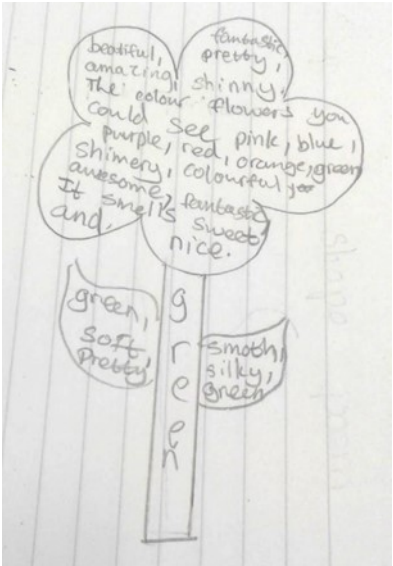 beautiful, fantastic,
amazing, pretty,
shinny.
The colour flowers you
could see pink, blue,
purple, red, orange, green
shimery, colourful
awesome, fantastic
It smells sweet
and, nice.
green,
soft,
pretty
green
smoth,
silky,
green